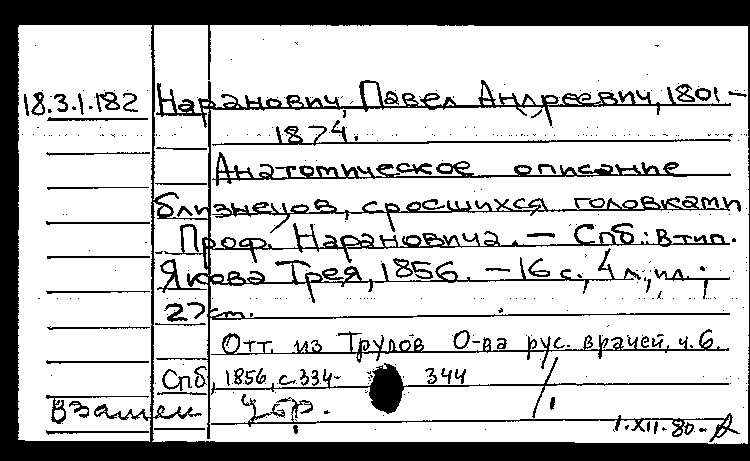 18.3.1.182 Наранович, Павел Андреевич, 1801-
1874.
Анатомическое описание
близнецов, сросшихся головками
Проф. Нарановича. — Спб.: В тип.
Якова Трея, 1856. — 16 с., 4 л. ил.;
27 cm.
Отт. из Трудов О-ва рус. врачей, ч. 6.
Спб, 1856, с. 334- 344
Взамен
1.XII.80